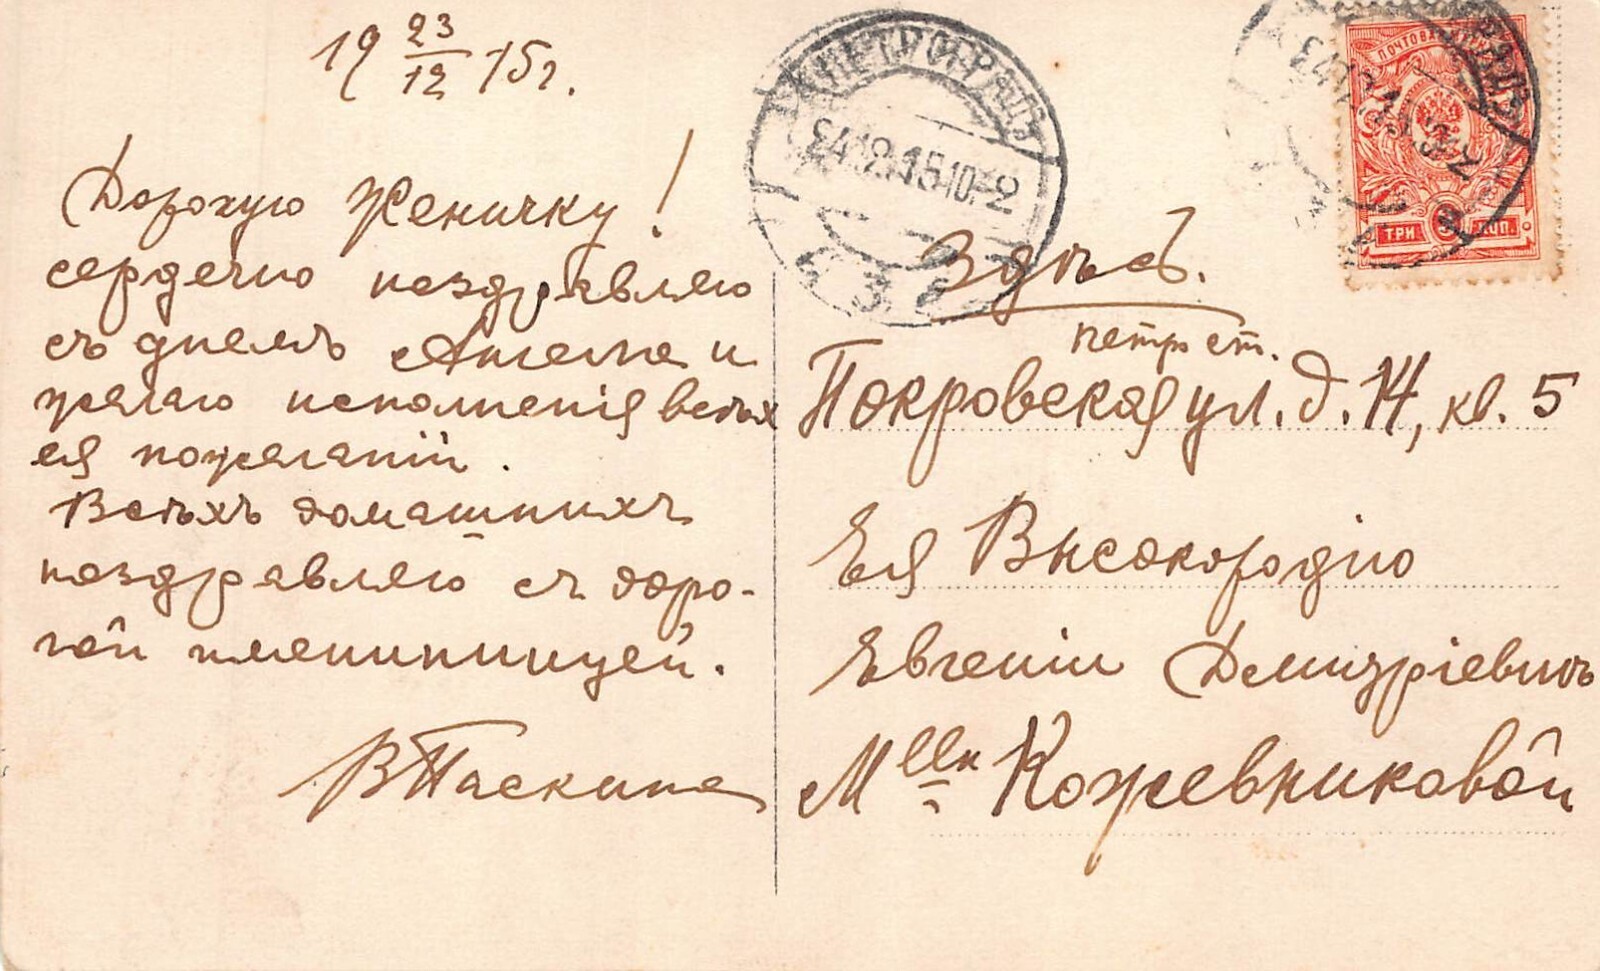 19 23/12 15г.
Дорогую Женичку!
сердечно поздравляю
съ днемъ Ангела и
желаю исполненія всѣхъ
ея пожеланій.
Всѣхъ домашнихъ
поздравляю съ доро-
гой именинницей.
В Паскина
ПЕТРОГРАДЪ
24.12.15.10-2
Здѣсь.
петр ст.
Покровская ул. д. 14, кв. 5
Ея Высокородію
Евгеніи Дмитріевнѣ
Mlle Кожевниковой
ПОЧТОВАЯ МАРКА
ТРИ 3 КОП.